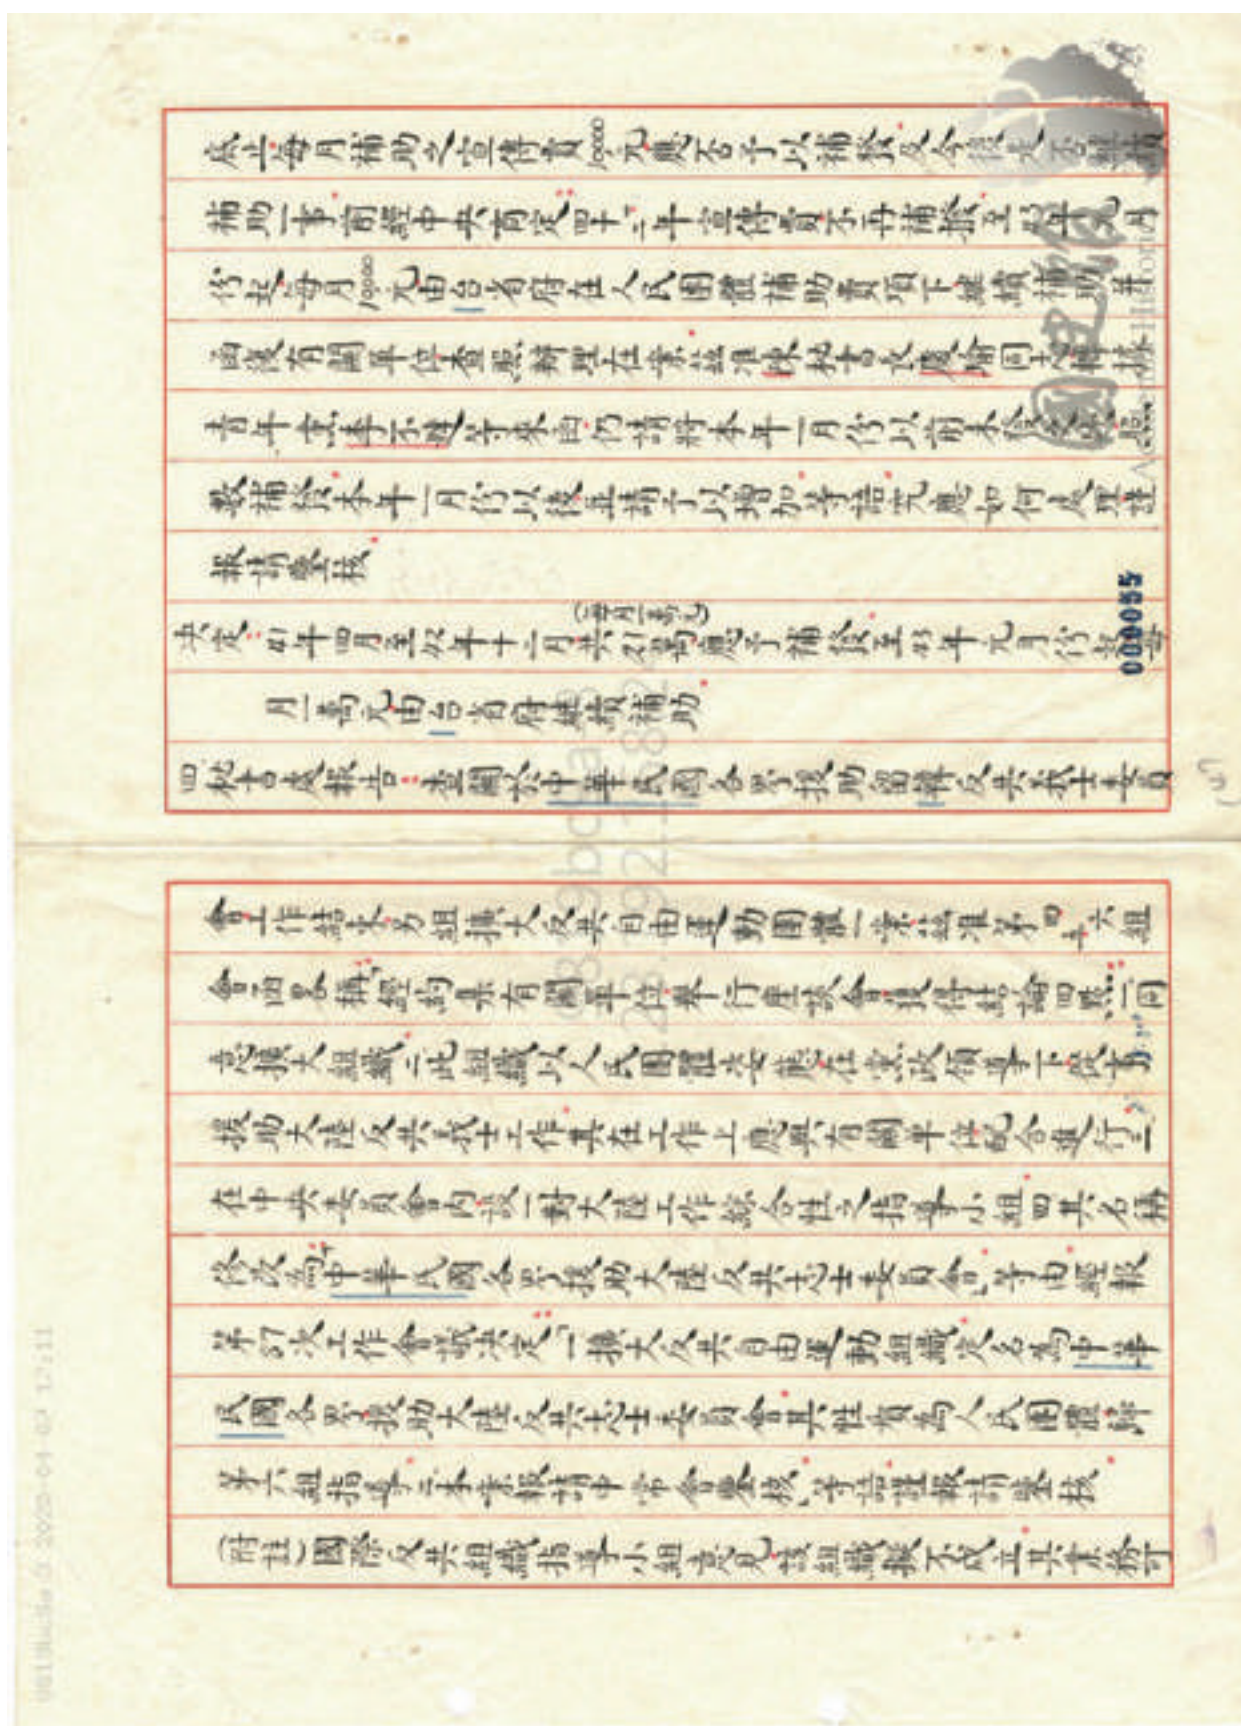 底止每月補助之宣傳費10000元應否予以補發及今後是否繼續
補助一事前經中央商定四十二年宣傳費不再補發至43年元月
份起每月10000元由台省府在人民團體補助費項下繼續補助并
函復有關單位查照辦理在案茲准陳秘書長慶瑜同志轉據
青年黨李不韙等來函仍請將本年一月份以前未發
數補發本年一月份以後並請予以增加等語究應如何處理謹
報請鑒核
決定：41年四月至42年十二月共21萬(每月一萬元)應予補發至43年元月份起每
月一萬元由台省府繼續補助
四秘書處報告：查關於中華民國各界援助留韓反共義士委員
000055
會工作結束另組擴大反共自由運動團體一案茲准第四五六組
會函略稱「經約集有關單位舉行座談會獲得結論四點：一同
意擴大組織二此組織以人民團體姿態在黨政領導下從事
援助大陸反共義士工作其在工作上應與有關單位配合進行三
在中央委員會內設一對大陸工作綜合性之指導小組四其名稱
修改為『中華民國各界援助大陸反共志士委員會』等由經報
第57次工作會議決定：「一擴大反共自由運動組織定名為中華
民國各界援助大陸反共志士委員會其性質為人民團體歸
第六組指導二本案報請中常會鑒核」等語謹報請鑒核
(附註)國際反共組織指導小組意見該組織擬不成立其業務可